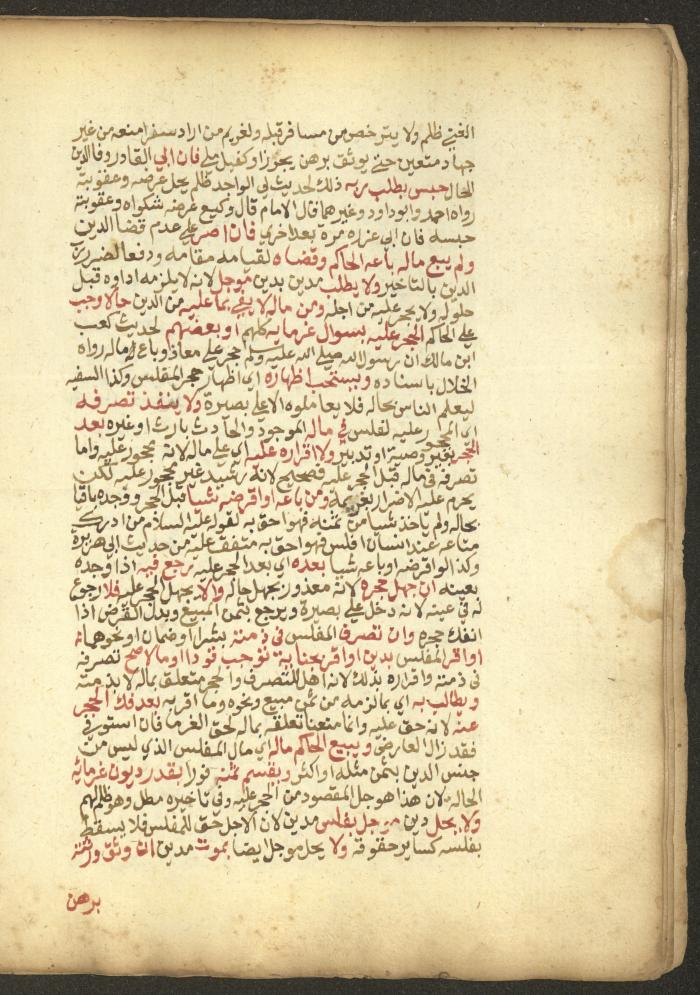 الغني ظلم ولا يترخص من مسافر قبله ولغريم من اراد سفرا منعه من غير
جهاد متعين حتى يوثق برهن يحوز او كفيل ملي فان ابى القادر وفا الدين
الحال حبس بطلب ربه ذلك لحديث لي الواجد ظلم يحل عرضه وعقوبته
رواه احمد وابو داود وغيرهما قال الامام قال وكيع عرضه شكواه وعقوبته
حبسه فان ابى عزره مرة بعد اخرى فان اصر على عدم قضا الدين
ولم يبع ماله باعه الحاكم وقضاه لقيامه مقامه ودفعا لضرر رب
الدين بالتاخير ولا يطلب مدين بدين موجل لانه لا يلزمه اداوه قبل
حلوله ولا يحجر عليه من اجله ومن ماله لا يفي بما عليه من الدين حالا وجب
على الحاكم الحجر عليه بسوال غرمايه كلهم او بعضهم لحديث كعب
ابن مالك ان رسول الله صلى الله عليه ولم حجر على معاذ وباع ماله رواه
الخلال باسناده ويستحب اظهاره اي اظهار حجر المفلس وكذا السفيه
ليعلم الناس بحاله فلا يعاملوه الا على بصيرة ولا ينفذ تصرفه
اي المحجور عليه لفلس في ماله الموجود والحادث بارث او غيره بعد
الحجر بغير وصية او تدبير ولا اقراره عليه اي على ماله لانه محجور عليه واما
تصرفه في ماله قبل الحجر عليه فصحيح لانه رشيد غير محجور عليه لكن
يحرم عليه الاضرار بغريمه ومن باعه او اقرضه شيا قبل الحجر ووجده باقيا
بحاله ولم ياخذ شيا من ثمنه فهو احق به لقوله عليه السلام من ادرك
متاعه عند انسان افلس فهو احق به متفق عليه من حديث ابي هريرة
وكذا لو اقرضه او باعه شيا بعده اي بعد الحجر عليه رجع فيه اذا وجده
بعينه ان جهل حجره لانه معذور بجهل حاله والا يجهل الحجر عليه فلا رجوع
له في عينه لانه دخل على بصيرة ويرجع بثمن المبيع وبدل القرض اذا
انفك حجره وان تصرف المفلس في ذمته بشرا او ضمان او نحوهما
او اقر المفلس بدين او اقر بجناية توجب قودا او مالا صح تصرفه
في ذمته واقراره بذلك لانه اهل للتصرف والحجر متعلق بماله لا بذمته
ويطالب به اي بما لزمه من ثمن مبيع ونحوه وما اقر به بعد فك الحجر
عنه لانه حق عليه وانما منعنا تعلقه بماله لحق الغرما فان استوفي
فقد زال العارض ويبيع الحاكم ماله اي مال المفلس الذي ليس من
جنس الدين بثمن مثله او اكثر ويقسم ثمنه فورا بقدر ديون غرمايه
الحالة لان هذا هو جل المقصود من الحجر عليه وفي تاخيره مطل وهو ظلم لهم
ولا يحل دين موجل بفلس مدين لان الاجل حق للمفلس فلا يسقط
بفلسه كساير حقوقه ولا يحل موجل ايضا بموت مدين ان وثق ورثته
برهن